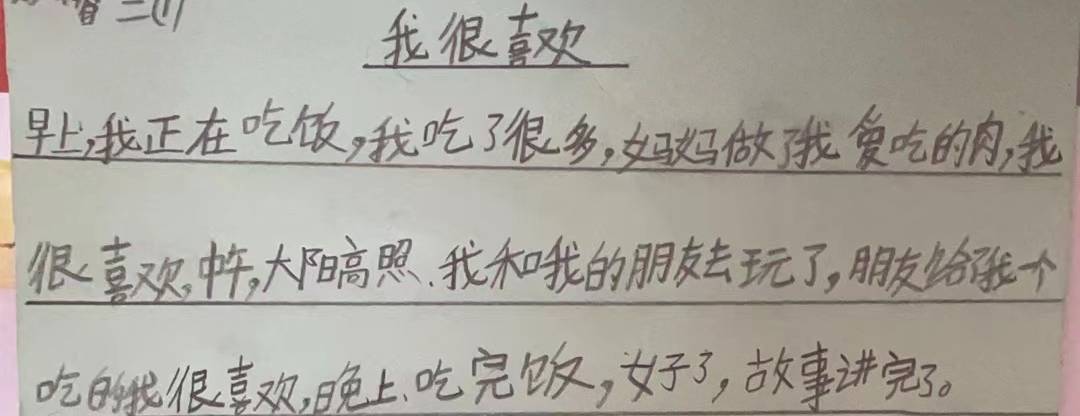 二(1)
我很喜欢
早上,我正在吃饭,我吃了很多,妈妈做了我爱吃的肉,我
很喜欢,中午,大阳高照、我和我的朋友去玩了,朋友给我一个
吃的我很喜欢,晚上、吃完饭,好了,故事讲完了。